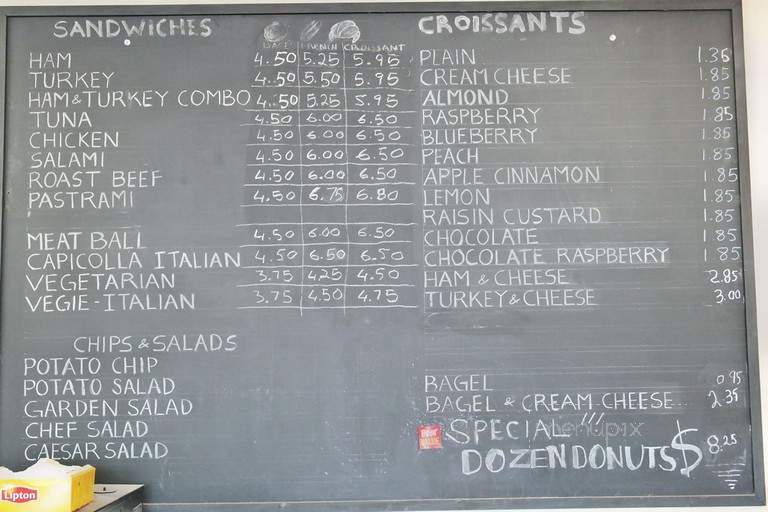 SANDWICHES
CROISSANT
HAM 4.50 5.25 5.95
TURKEY 4.50 5.50 5.95
HAM & TURKEY COMBO 4.50 5.25 5.95
TUNA 4.50 6.00 6.50
CHICKEN 4.50 6.00 6.50
SALAMI 4.50 6.00 6.50
ROAST BEEF 4.50 6.00 6.50
PASTRAMI 4.50 6.75 6.80
MEAT BALL 4.50 6.00 6.50
CAPICOLLA ITALIAN 4.50 6.50 6.50
VEGETARIAN 3.75 4.25 4.50
VEGIE-ITALIAN 3.75 4.50 4.75
CHIPS & SALADS
POTATO CHIP
POTATO SALAD
GARDEN SALAD
CHEF SALAD
CAESAR SALAD
Lipton
CROISSANTS
PLAIN 1.36
CREAM CHEESE 1.85
ALMOND 1.85
RASPBERRY 1.85
BLUEBERRY 1.85
PEACH 1.85
APPLE CINNAMON 1.85
LEMON 1.85
RAISIN CUSTARD 1.85
CHOCOLATE 1.85
CHOCOLATE RASPBERRY 1.85
HAM & CHEESE 2.85
TURKEY & CHEESE 3.00
BAGEL 0.95
BAGEL & CREAM CHEESE 2.39
SPECIAL!!!
menupix
DOZEN DONUTS $ 8.25